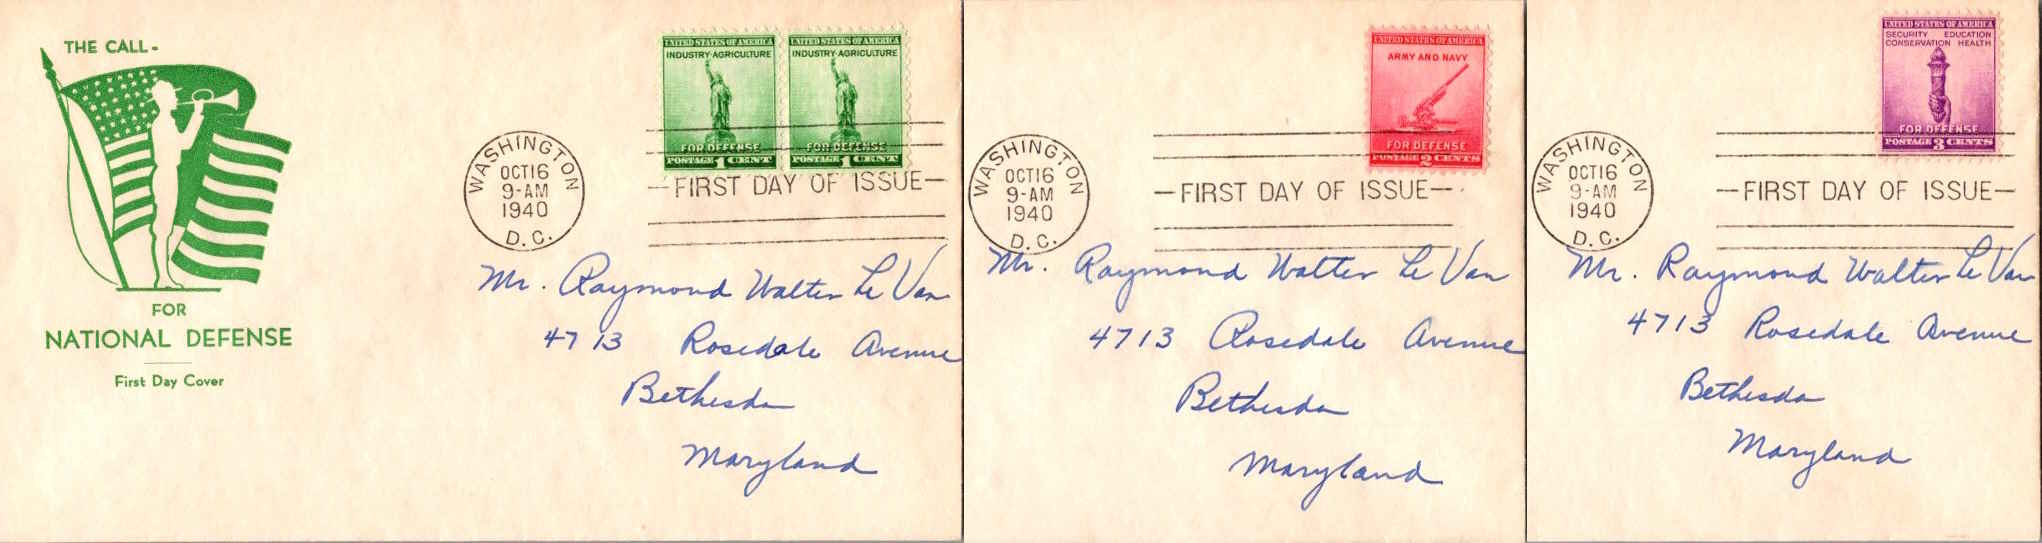 THE CALL-
FOR
NATIONAL DEFENSE
First Day Cover
UNITED STATES OF AMERICA
INDUSTRY·AGRICULTURE
FOR DEFENSE
POSTAGE 1 CENT
UNITED STATES OF AMERICA
INDUSTRY·AGRICULTURE
FOR DEFENSE
POSTAGE 1 CENT
WASHINGTON
OCT 16
9-AM
1940
D. C.
FIRST DAY OF ISSUE
Mr. Raymond Walter Le Van
4713 Rosedale Avenue
Bethesda
Maryland
UNITED STATES OF AMERICA
ARMY AND NAVY
FOR DEFENSE
POSTAGE 2 CENTS
WASHINGTON
OCT 16
9-AM
1940
D. C.
FIRST DAY OF ISSUE
Mr. Raymond Walter Le Van
4713 Rosedale Avenue
Bethesda
Maryland
UNITED STATES OF AMERICA
SECURITY EDUCATION
CONSERVATION HEALTH
FOR DEFENSE
POSTAGE 3 CENTS
WASHINGTON
OCT 16
9-AM
1940
D. C.
FIRST DAY OF ISSUE
Mr. Raymond Walter Le Van
4713 Rosedale Avenue
Bethesda
Maryland